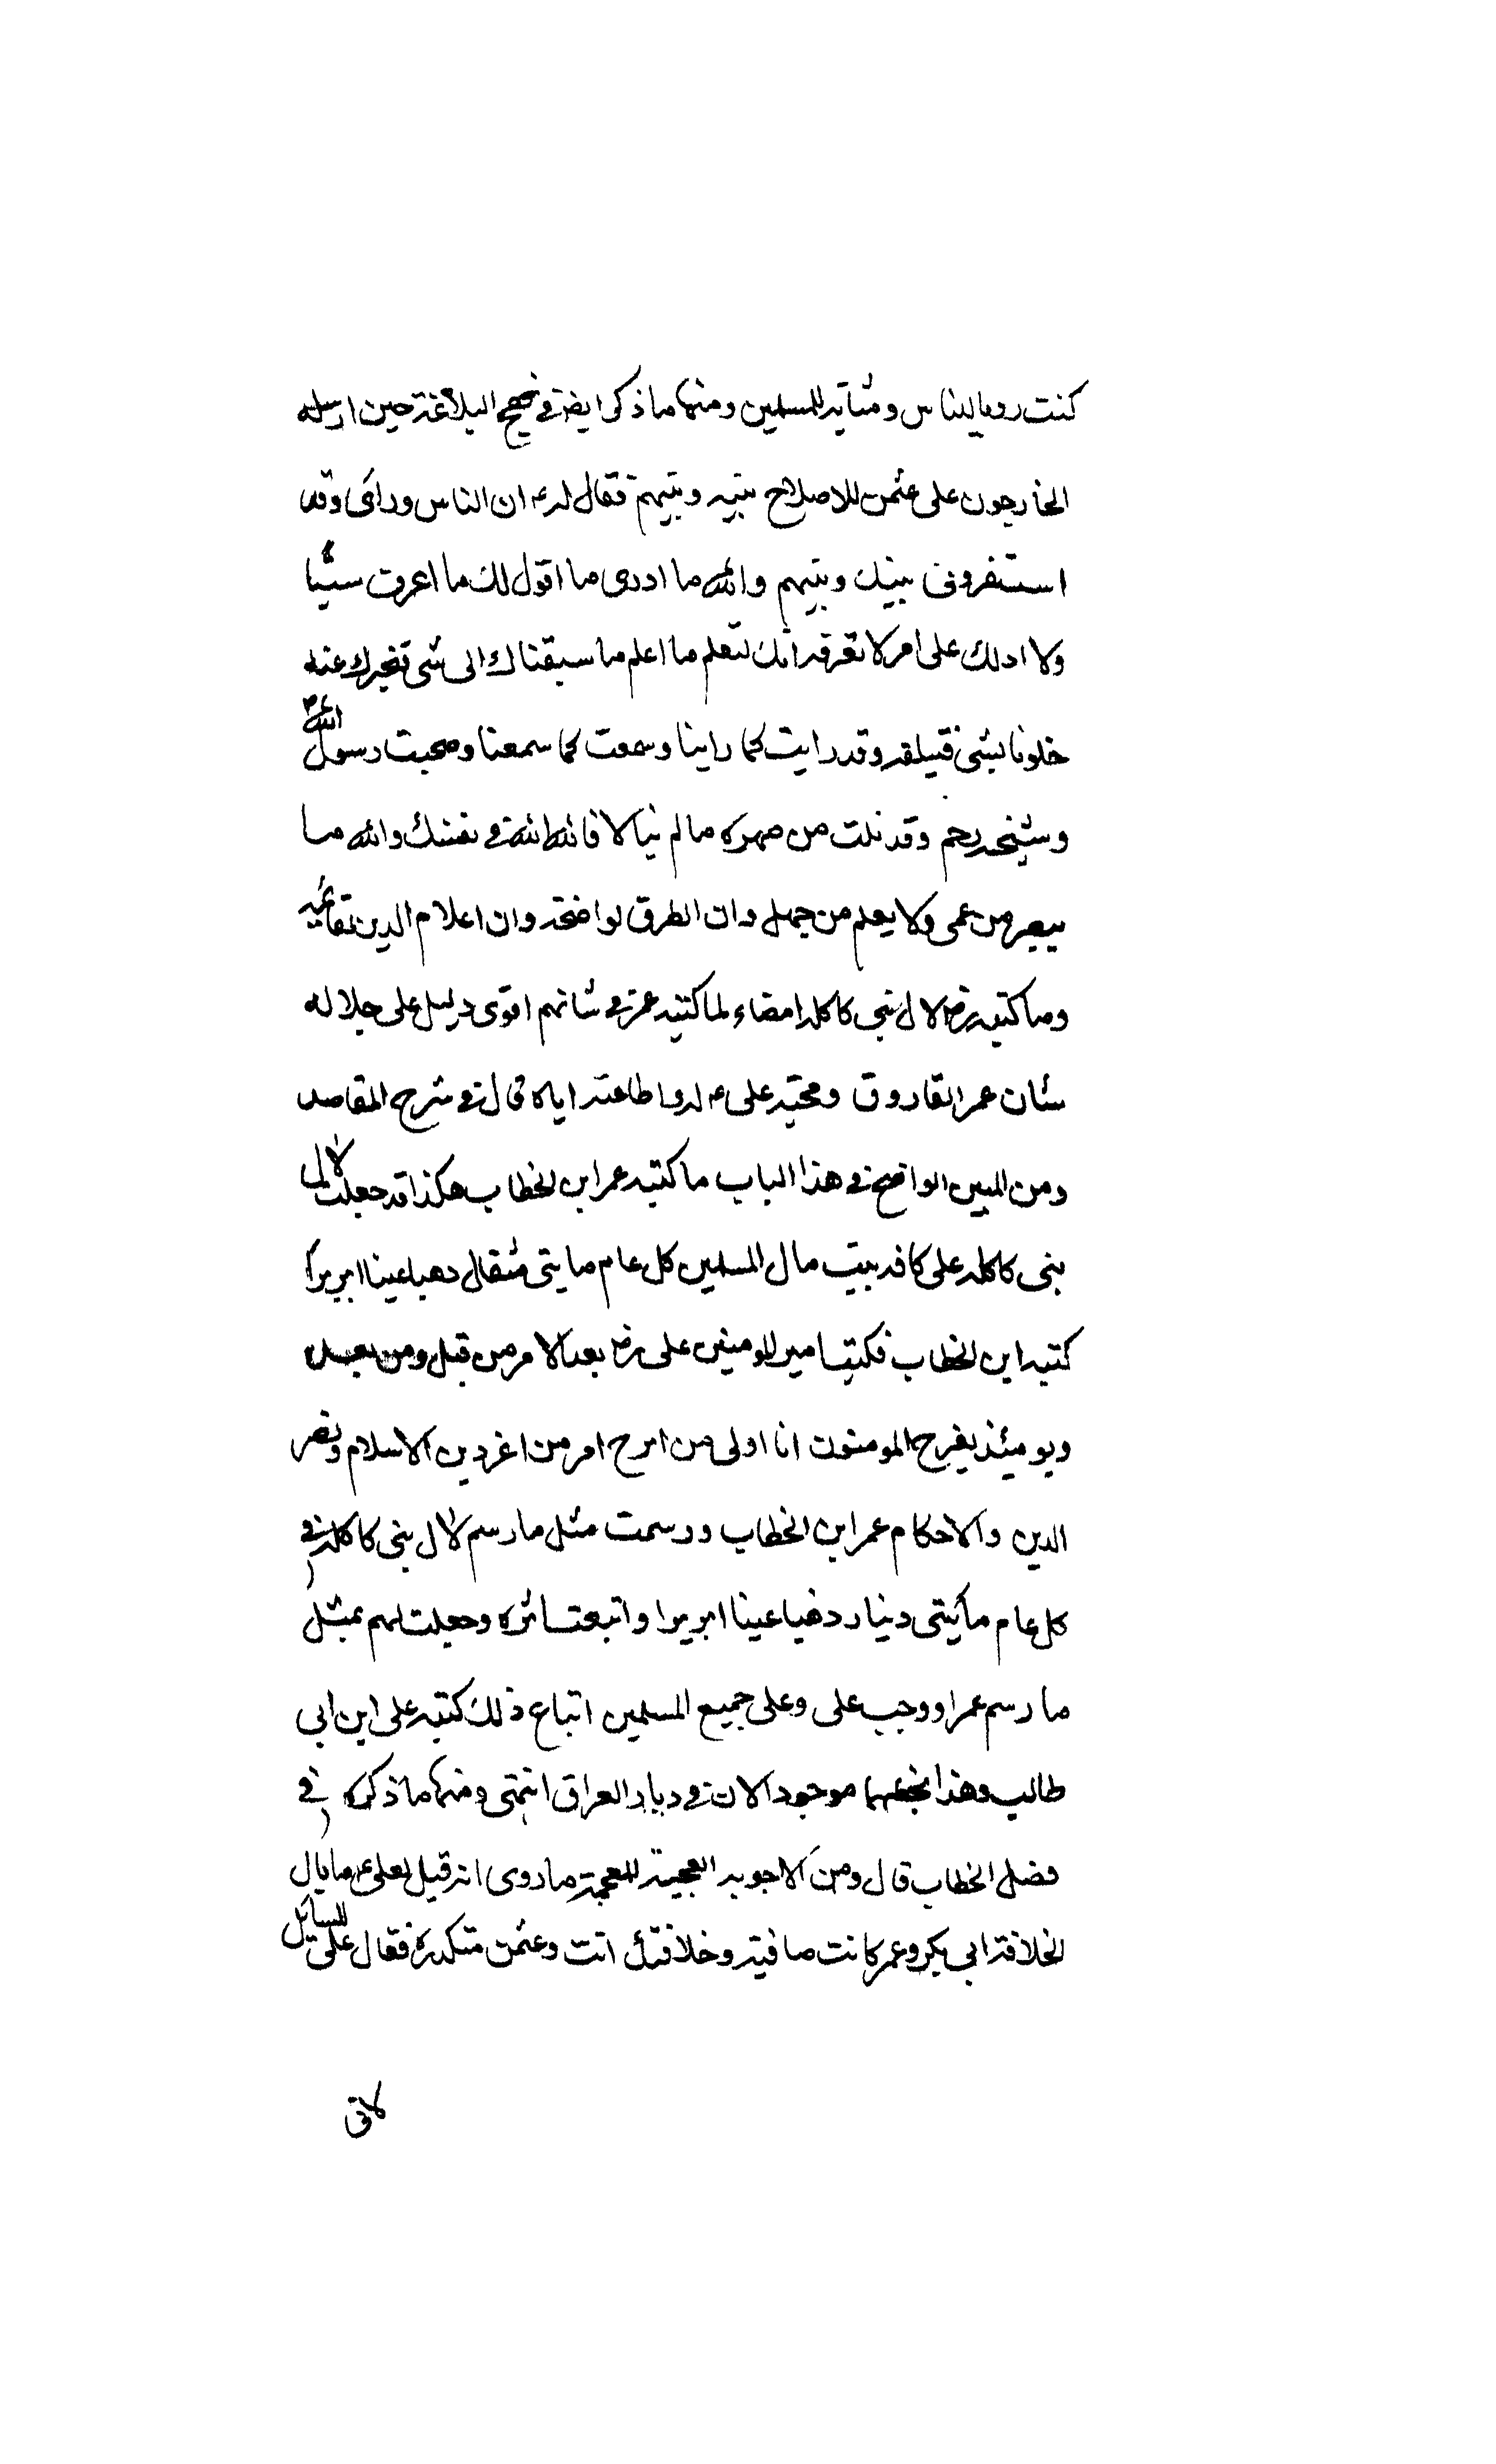 كنت رويا للناس ومثابة للمسلمين ومنها ما ذكر ايضا في نهج البلاغة حين ارسله
الخارجون على عثمن للاصلاح بينه وبينهم فقال له ع ان الناس ورائى وقد
استفرونى بينك وبينهم والله ما ادرى ما اقول لك ما اعرف شيئا
ولا ادلك على امر لا تعرفه انك لتعلم ما اعلم ما سبقناك الى شى نخبرك عنه
خلونا بشى فنبلغه وقد رايت كما راينا وسمعت كما سمعنا وصحبت رسول الله
وقد نلت من صهره ما لم ينالا فالله الله في نفسك والله ما
يبصر من عمى ولا يعلم من جهل وان الطرق لواضحة وان اعلام الدين لقائمه
وما كتبه رض لال بني كاكله امضاء لما كتبه عمر في شانهم اقوى دليل على جلاله
شان عمر الفاروق ومحبة على ع له واطاعته اياه قال في شرح المقاصد
ومن البين الواضح في هذا الباب ما كتبه عمر ابن الخطاب هكذا قد جعلت لال
بنى كاكله على كافه بيت مال المسلمين كل عام مايتى مثقال ذهبا عينا ابريزا
كتبه ابن الخطاب فكتب امير المومنين على رض بعد الامر من قبل ومن بعد
ويومئذ يفرح المومنون انا اولى من اتبع امر من اعز دين الاسلام ونصر
الدين والاحكام عمر ابن الخطاب ورسمت مثل ما رسم لال بنى كاكله في
كل عام مائيتى دينار ذهبا عينا ابريزا واتبعت اثره وجعلت لهم بمثل
ما رسم عمر او وجب على وعلى جميع المسلمين اتباع ذلك كتبه على ابن ابى
طالب وهذا بخطهما موجود الان في ديار العراق انتهى ومنها ما ذكره في
فصل الخطاب قال ومن الاجوبه العجيبة المعجبة ما روى انه قيل لعلى ع ما بال
الخلافة ابي بكر وعمر كانت صافية وخلافتك انت وعثمن متكدرة فقال على للسايل
لانى